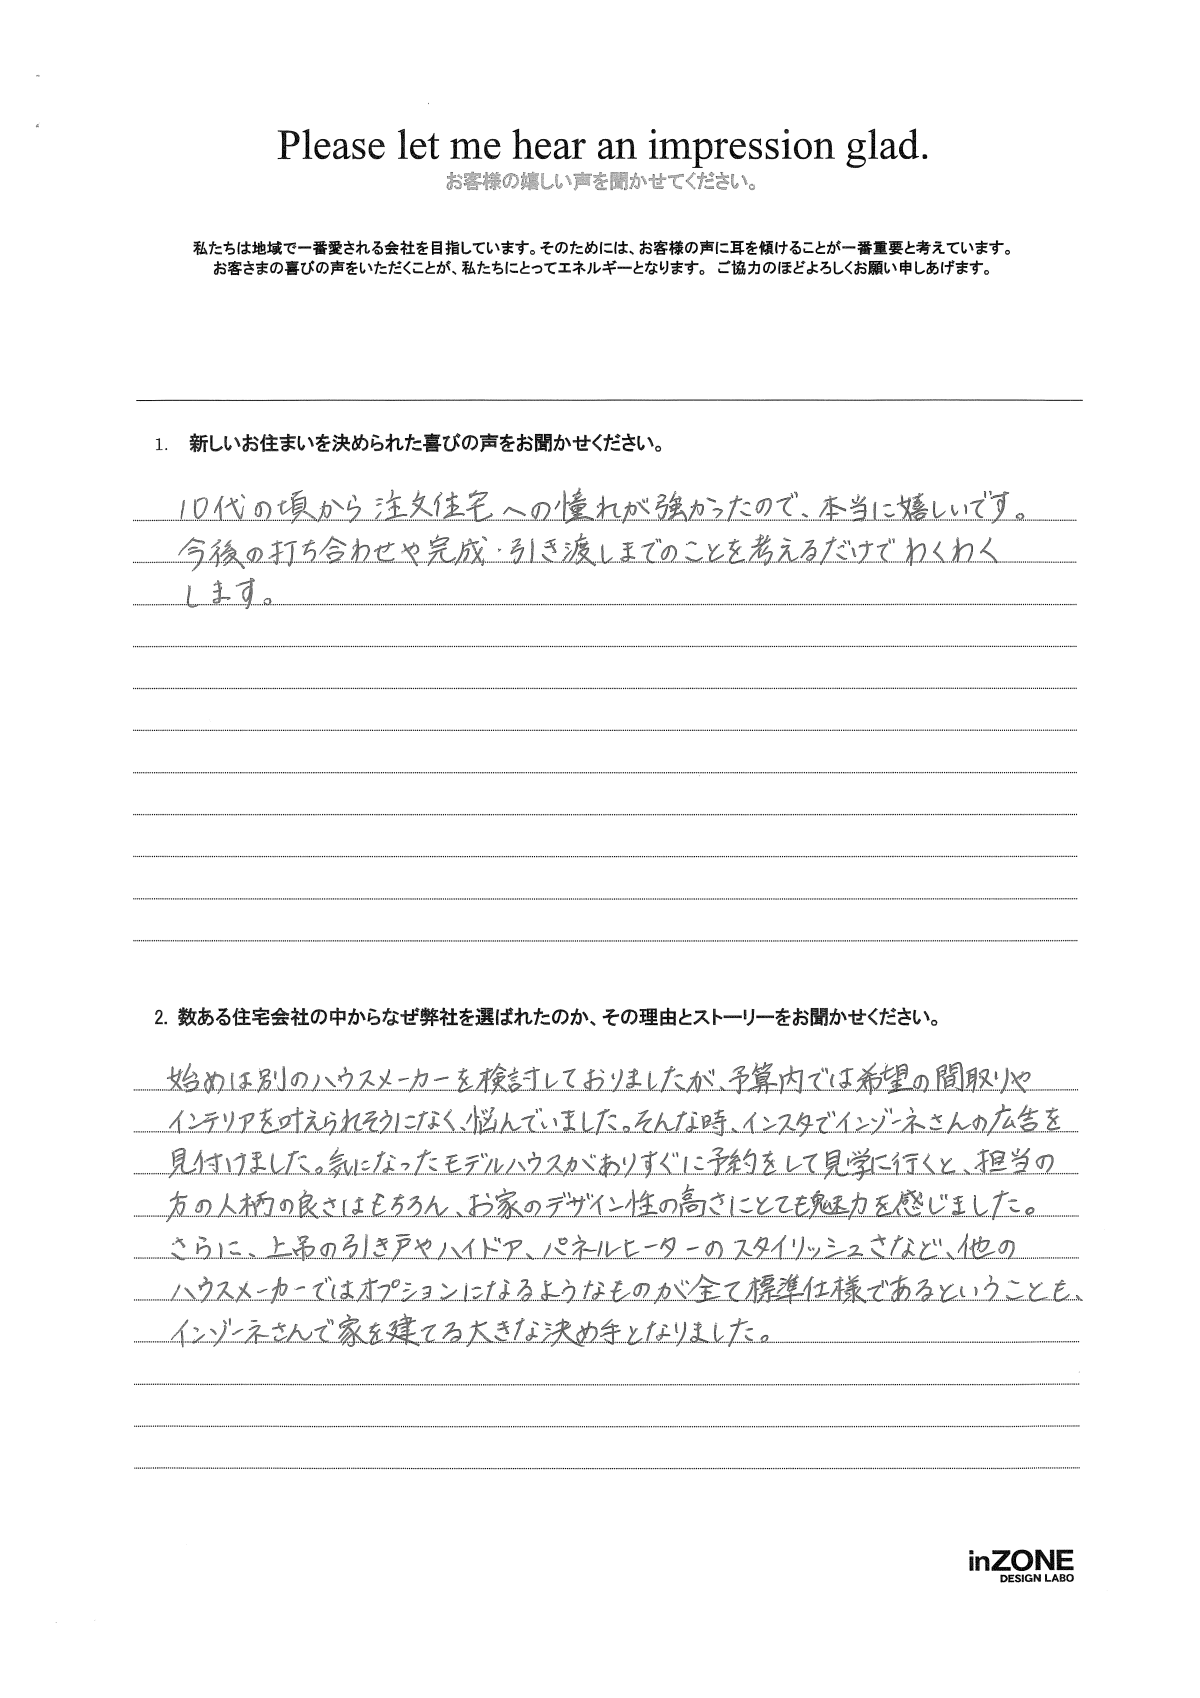 Please let me hear an impression glad.
お客様の嬉しい声を聞かせてください。
私たちは地域で一番愛される会社を目指しています。そのためには、お客様の声に耳を傾けることが一番重要と考えています。
お客さまの喜びの声をいただくことが、私たちにとってエネルギーとなります。 ご協力のほどよろしくお願い申しあげます。
1. 新しいお住まいを決められた喜びの声をお聞かせください。
10代の頃から注文住宅への憧れが強かったので、本当に嬉しいです。
今後の打ち合わせや完成・引き渡しまでのことを考えるだけでわくわく
します。
2. 数ある住宅会社の中からなぜ弊社を選ばれたのか、その理由とストーリーをお聞かせください。
始めは別のハウスメーカーを検討しておりましたが、予算内では希望の間取りや
インテリアを叶えられそうになく、悩んでいました。そんな時、インスタでインゾーネさんの広告を
見付けました。気になったモデルハウスがありすぐに予約をして見学に行くと、担当の
方の人柄の良さはもちろん、お家のデザイン性の高さにとても魅力を感じました。
さらに、上吊の引き戸やハイドア、パネルヒーターのスタイリッシュさなど、他の
ハウスメーカーではオプションになるようなものが全て標準仕様であるということも、
インゾーネさんで家を建てる大きな決め手となりました。
inZONE
DESIGN LABO